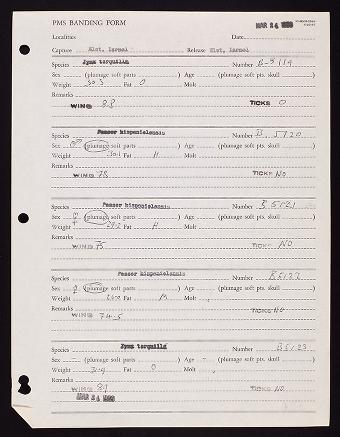 PMS BANDING FORM
Localities Date MAR 24 1968
Capture Eist, Israel Release Eist, Israel
Species Jynx torquilla Number B-5119
Sex (plumage soft parts ) Age (plumage soft pts. skull )
Weight 30.3 Fat O Molt
Remarks
WING 88 TICKS O
Species Passer hispaniolensis Number B 5120
Sex ♂ (plumage soft parts ) Age (plumage soft pts. skull )
Weight Fat M Molt
Remarks
WING 78 TICKS NO
Species Passer hispaniolensis Number B 5121
Sex ♀ (plumage soft parts ) Age (plumage soft pts. skull )
Weight 29.2 Fat M Molt
Remarks
WING 75 TICKS NO
Species Passer hispaniolensis Number B 5122
Sex ♀ (plumage soft parts ) Age (plumage soft pts. skull )
Weight Fat M Molt
Remarks
WING 74.5 TICKS NO
Species Jynx torquilla Number B 5123
Sex (plumage soft parts ) Age - (plumage soft pts. skull )
Weight Fat O Molt
Remarks
WING 89 TICKS NO
MAR 24 1968